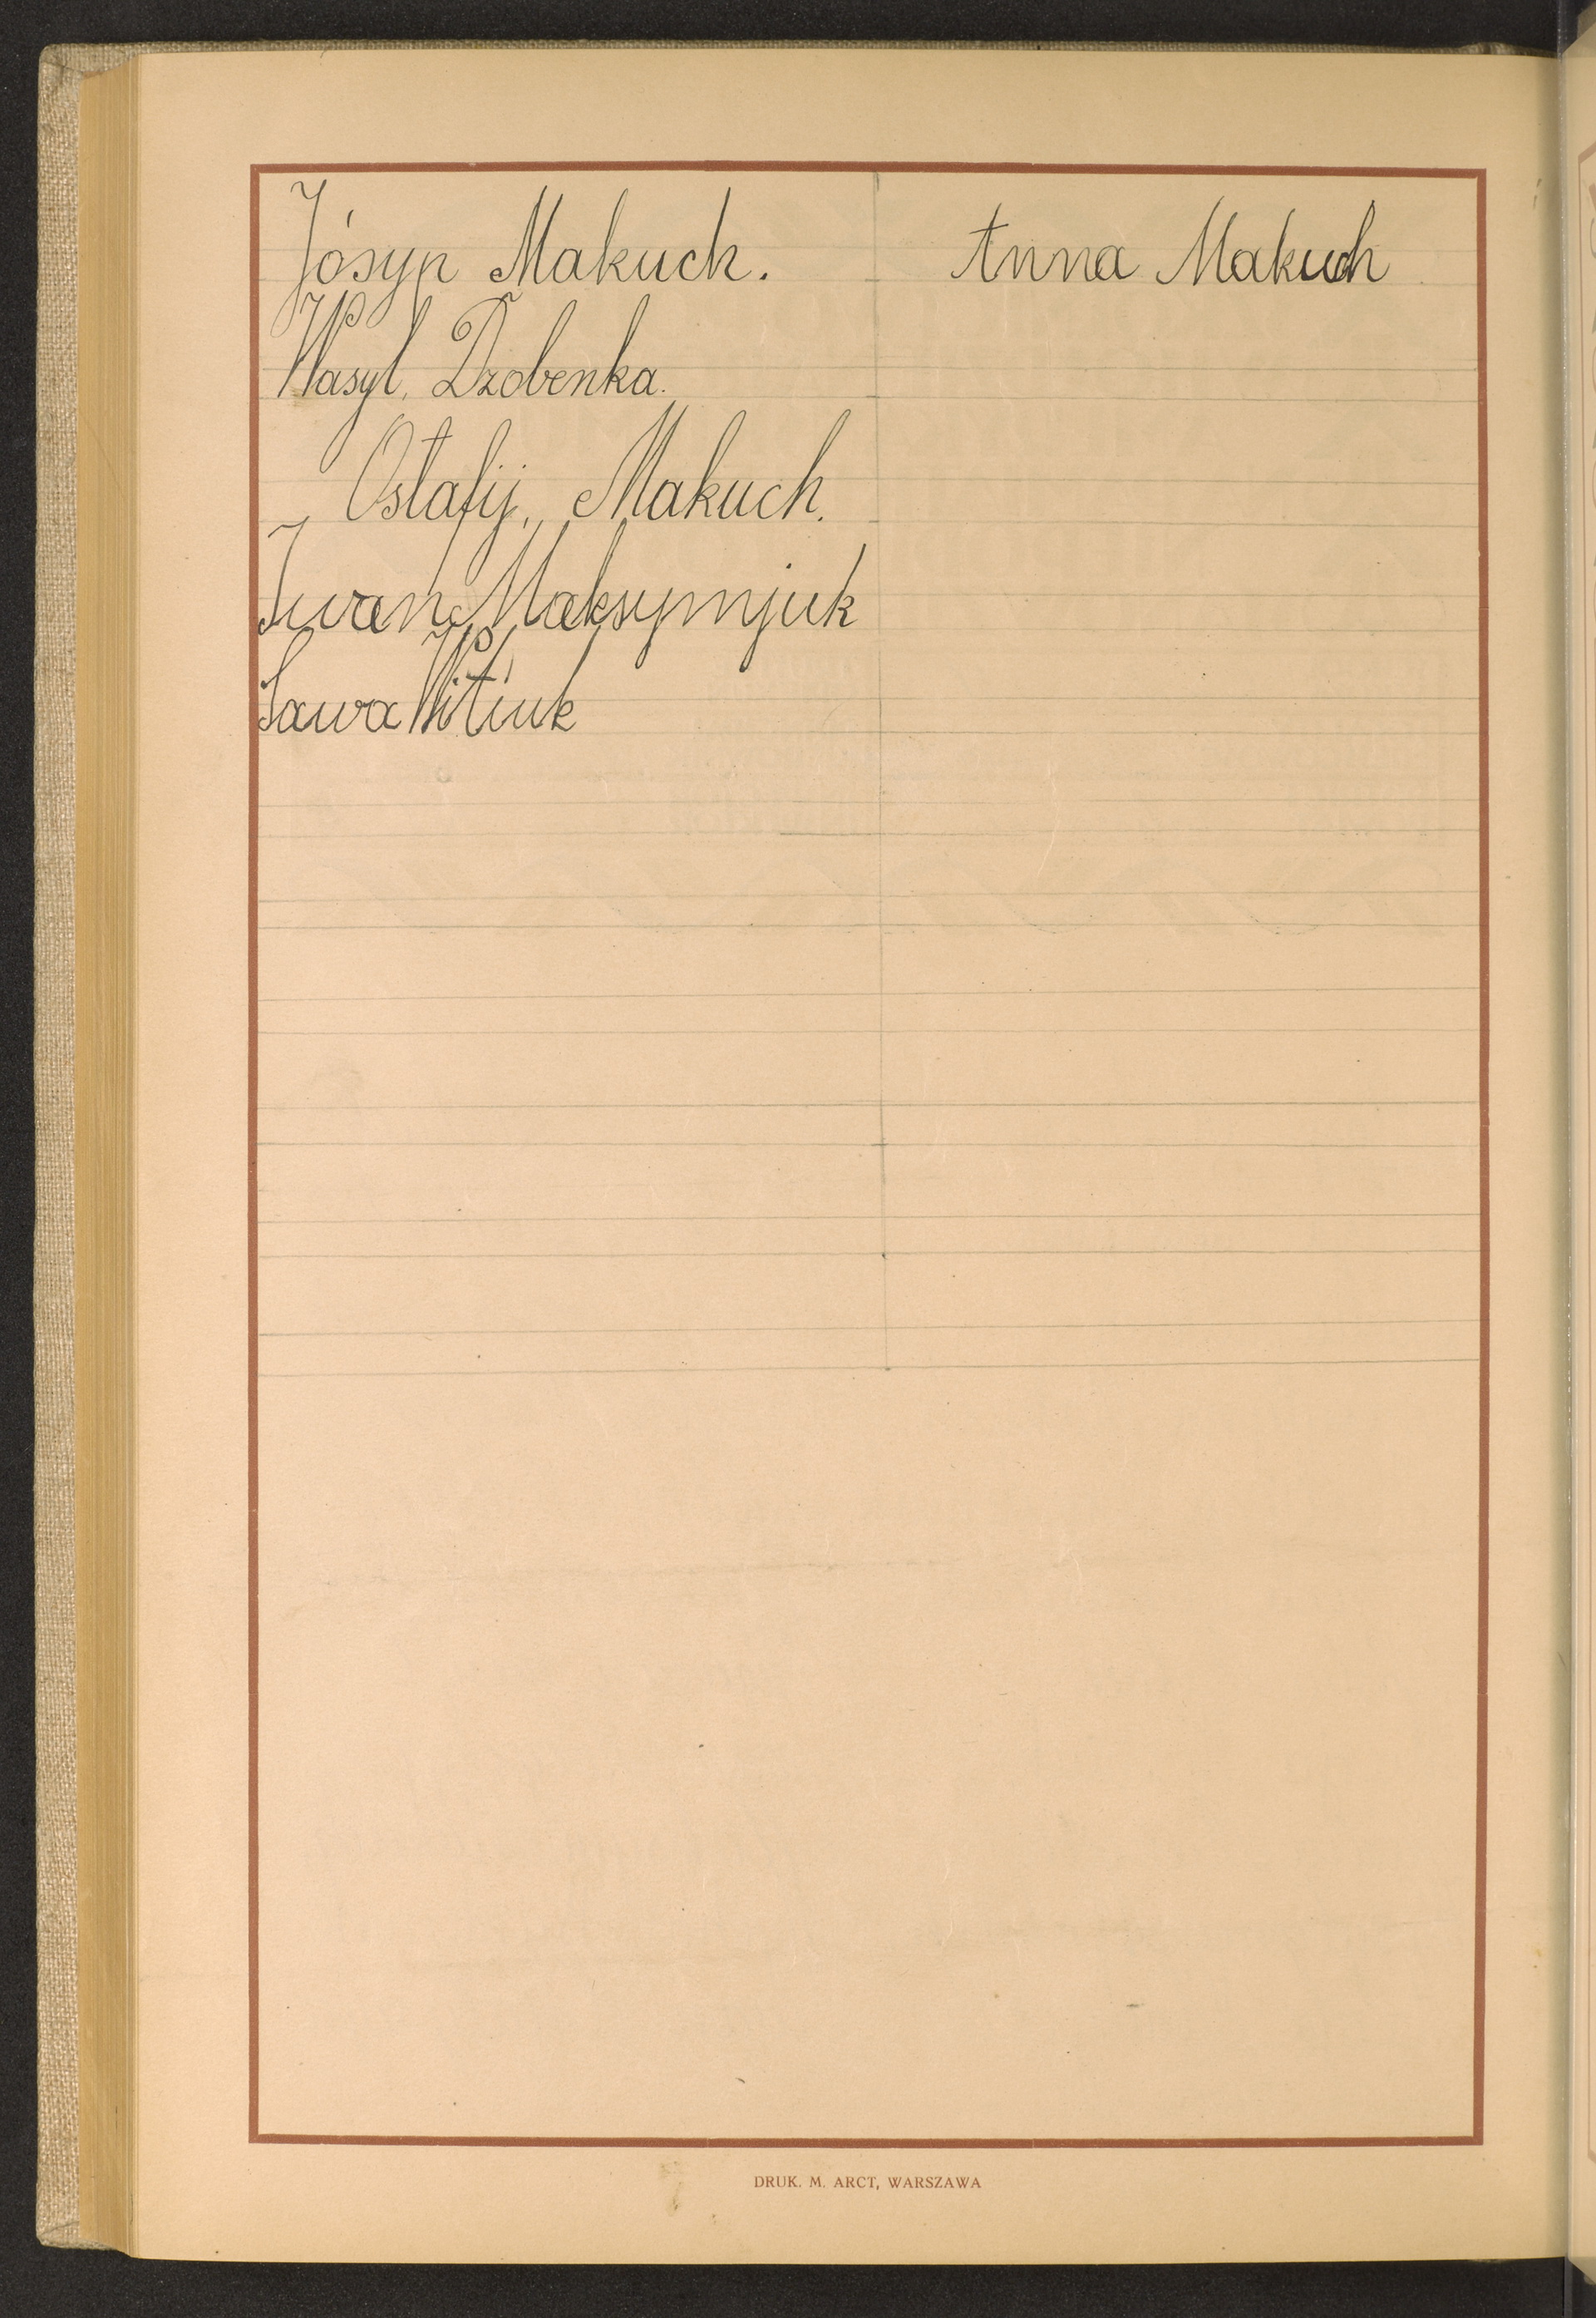 Jósyp Makuch.
Wasyl, Dzobenka.
Ostafij, Makuch.
Iwan Maksymjuk
Sawa Witiuk
Anna Makuch
DRUK. M. ARCT, WARSZAWA